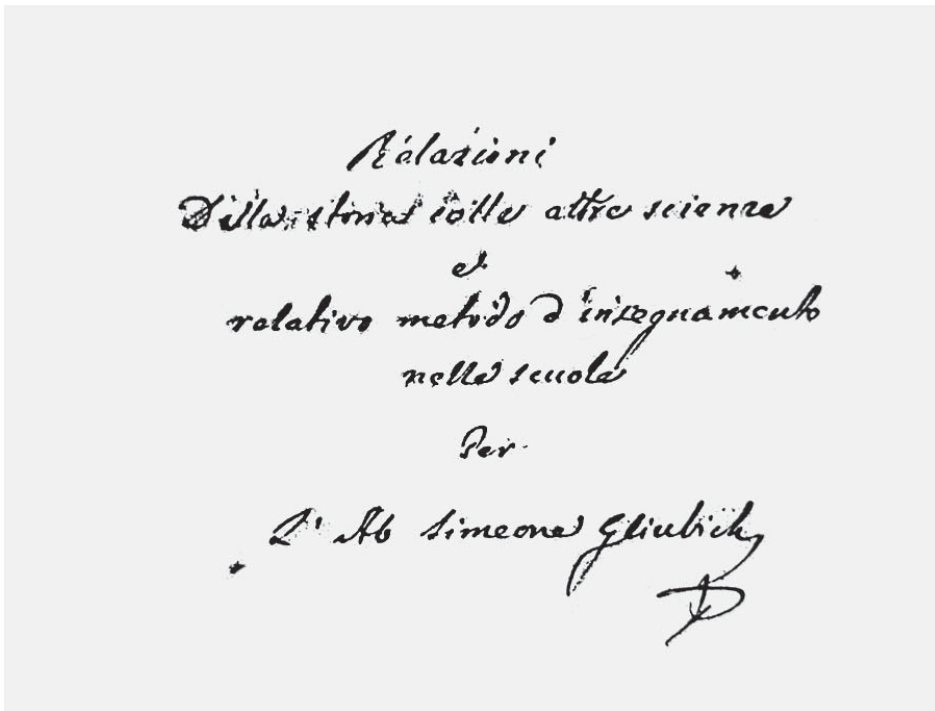 Relazioni
Della storia colle altre scienze
e
relativo metodo d'insegnamento
nelle scuole
Per
L' Ab Simeone Gliubich